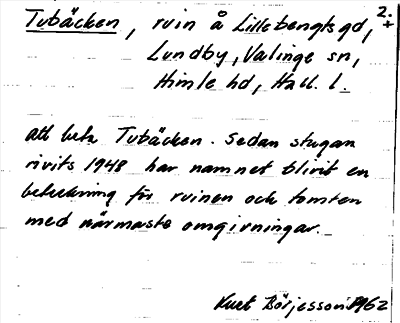 Tubäcken, ruin å Lillebengtsgd, 2.
Lundby, Valinge sn,
Himle hd, Hall. l.
att beta Tubäcken. Sedan stugan
rivits 1948 har namnet blivit en
beteckning för ruinen och tomten
med närmaste omgivningar.
Kurt Börjesson 1962